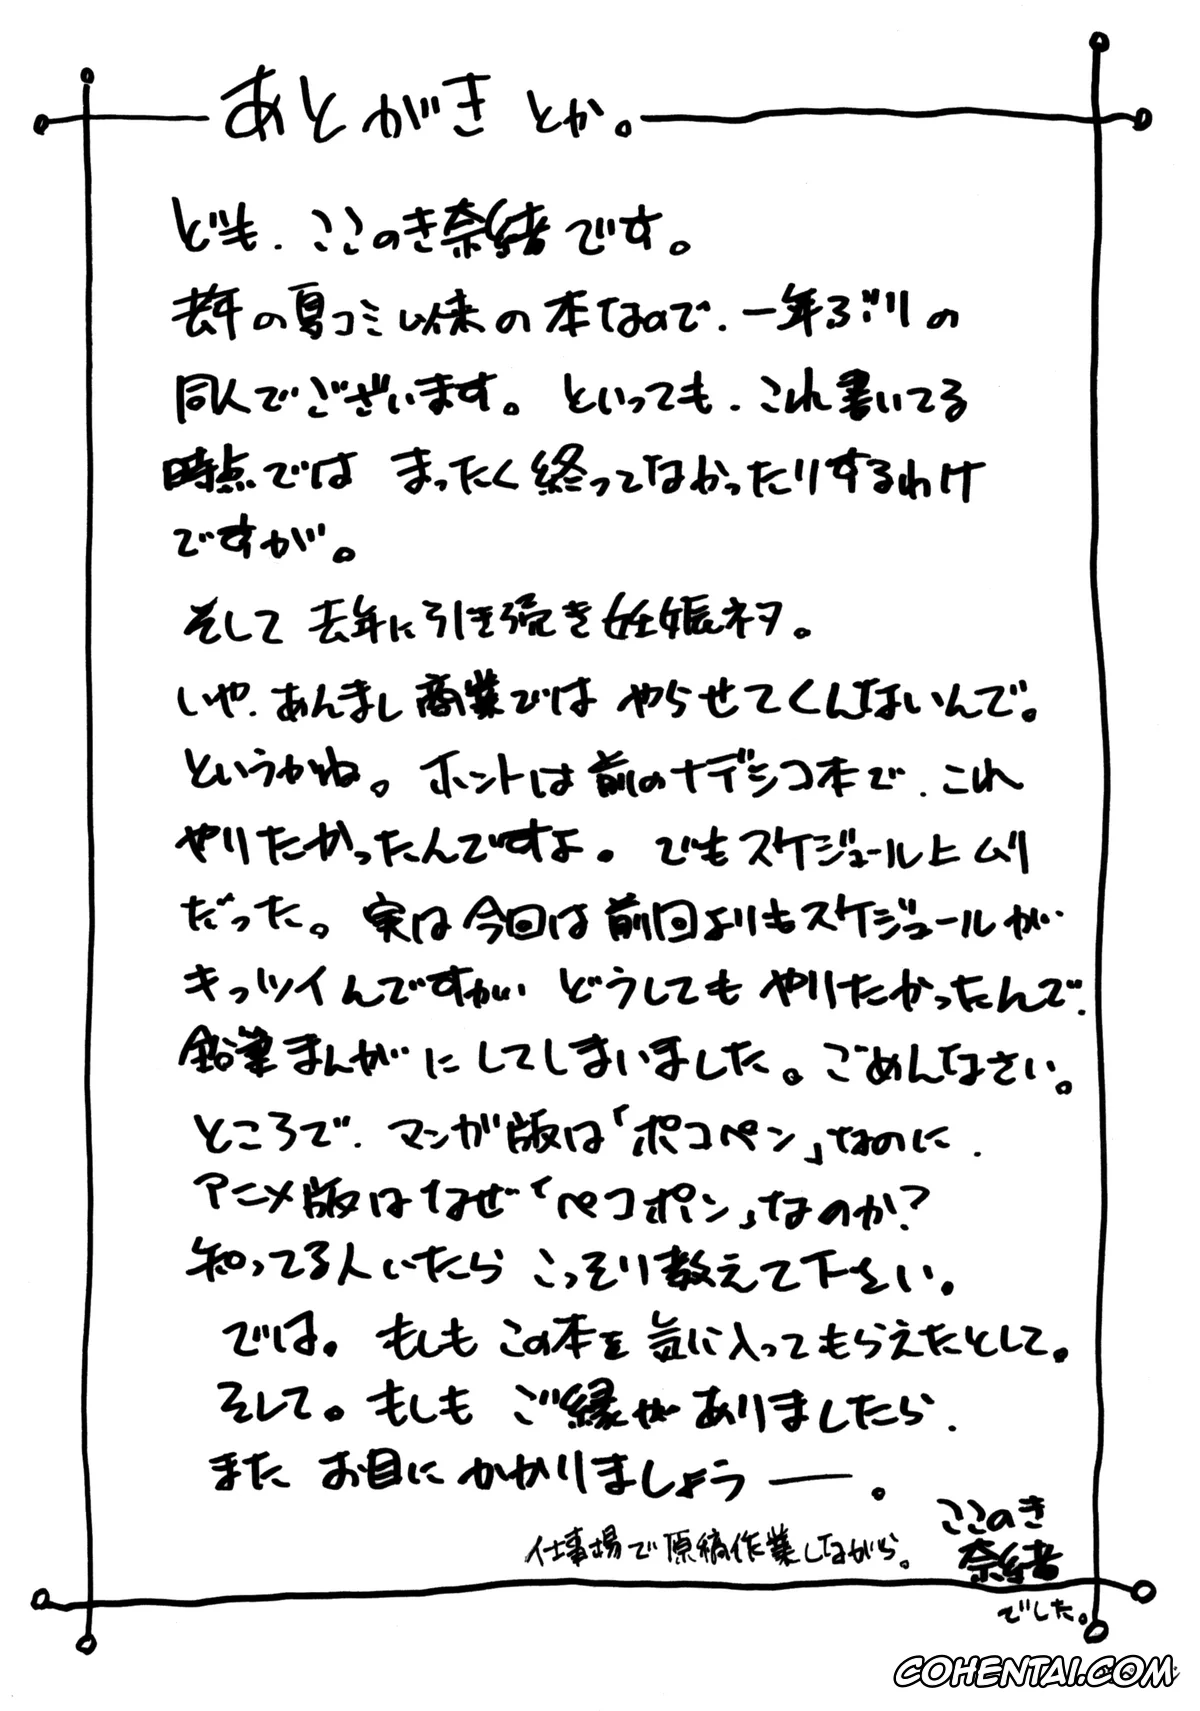 あとがきとか。
ども、ここのき奈緒です。
去年の夏コミ以来の本なので、一年ぶりの
同人でございます。といっても、これ書いてる
時点では まったく終ってなかったりするわけ
ですが。
そして 去年に引き続き妊娠ネタ。
いや、あんまし商業では やらせてくんないんで。
というかね。ホントは前のナデシコ本で、これ
やりたかったんですよ。でもスケジュール上ムリ
だった。実は今回は前回よりもスケジュールが
キッツイんですがい どうしてもやりたかったんで、
鉛筆まんがにしてしまいました。ごめんなさい。
ところで、マンガ版は「ポコペン」なのに、
アニメ版はなぜ「ペコポン」なのか？
知ってる人いたら こっそり教えて下さい。
では。もしも この本を 気に入ってもらえたとして。
そして。もしも ご縁がありましたら、
また お目にかかりましょうー。
仕事場で原稿作業しながら。
ここのき
奈緒
でした。
COHENTAI.COM